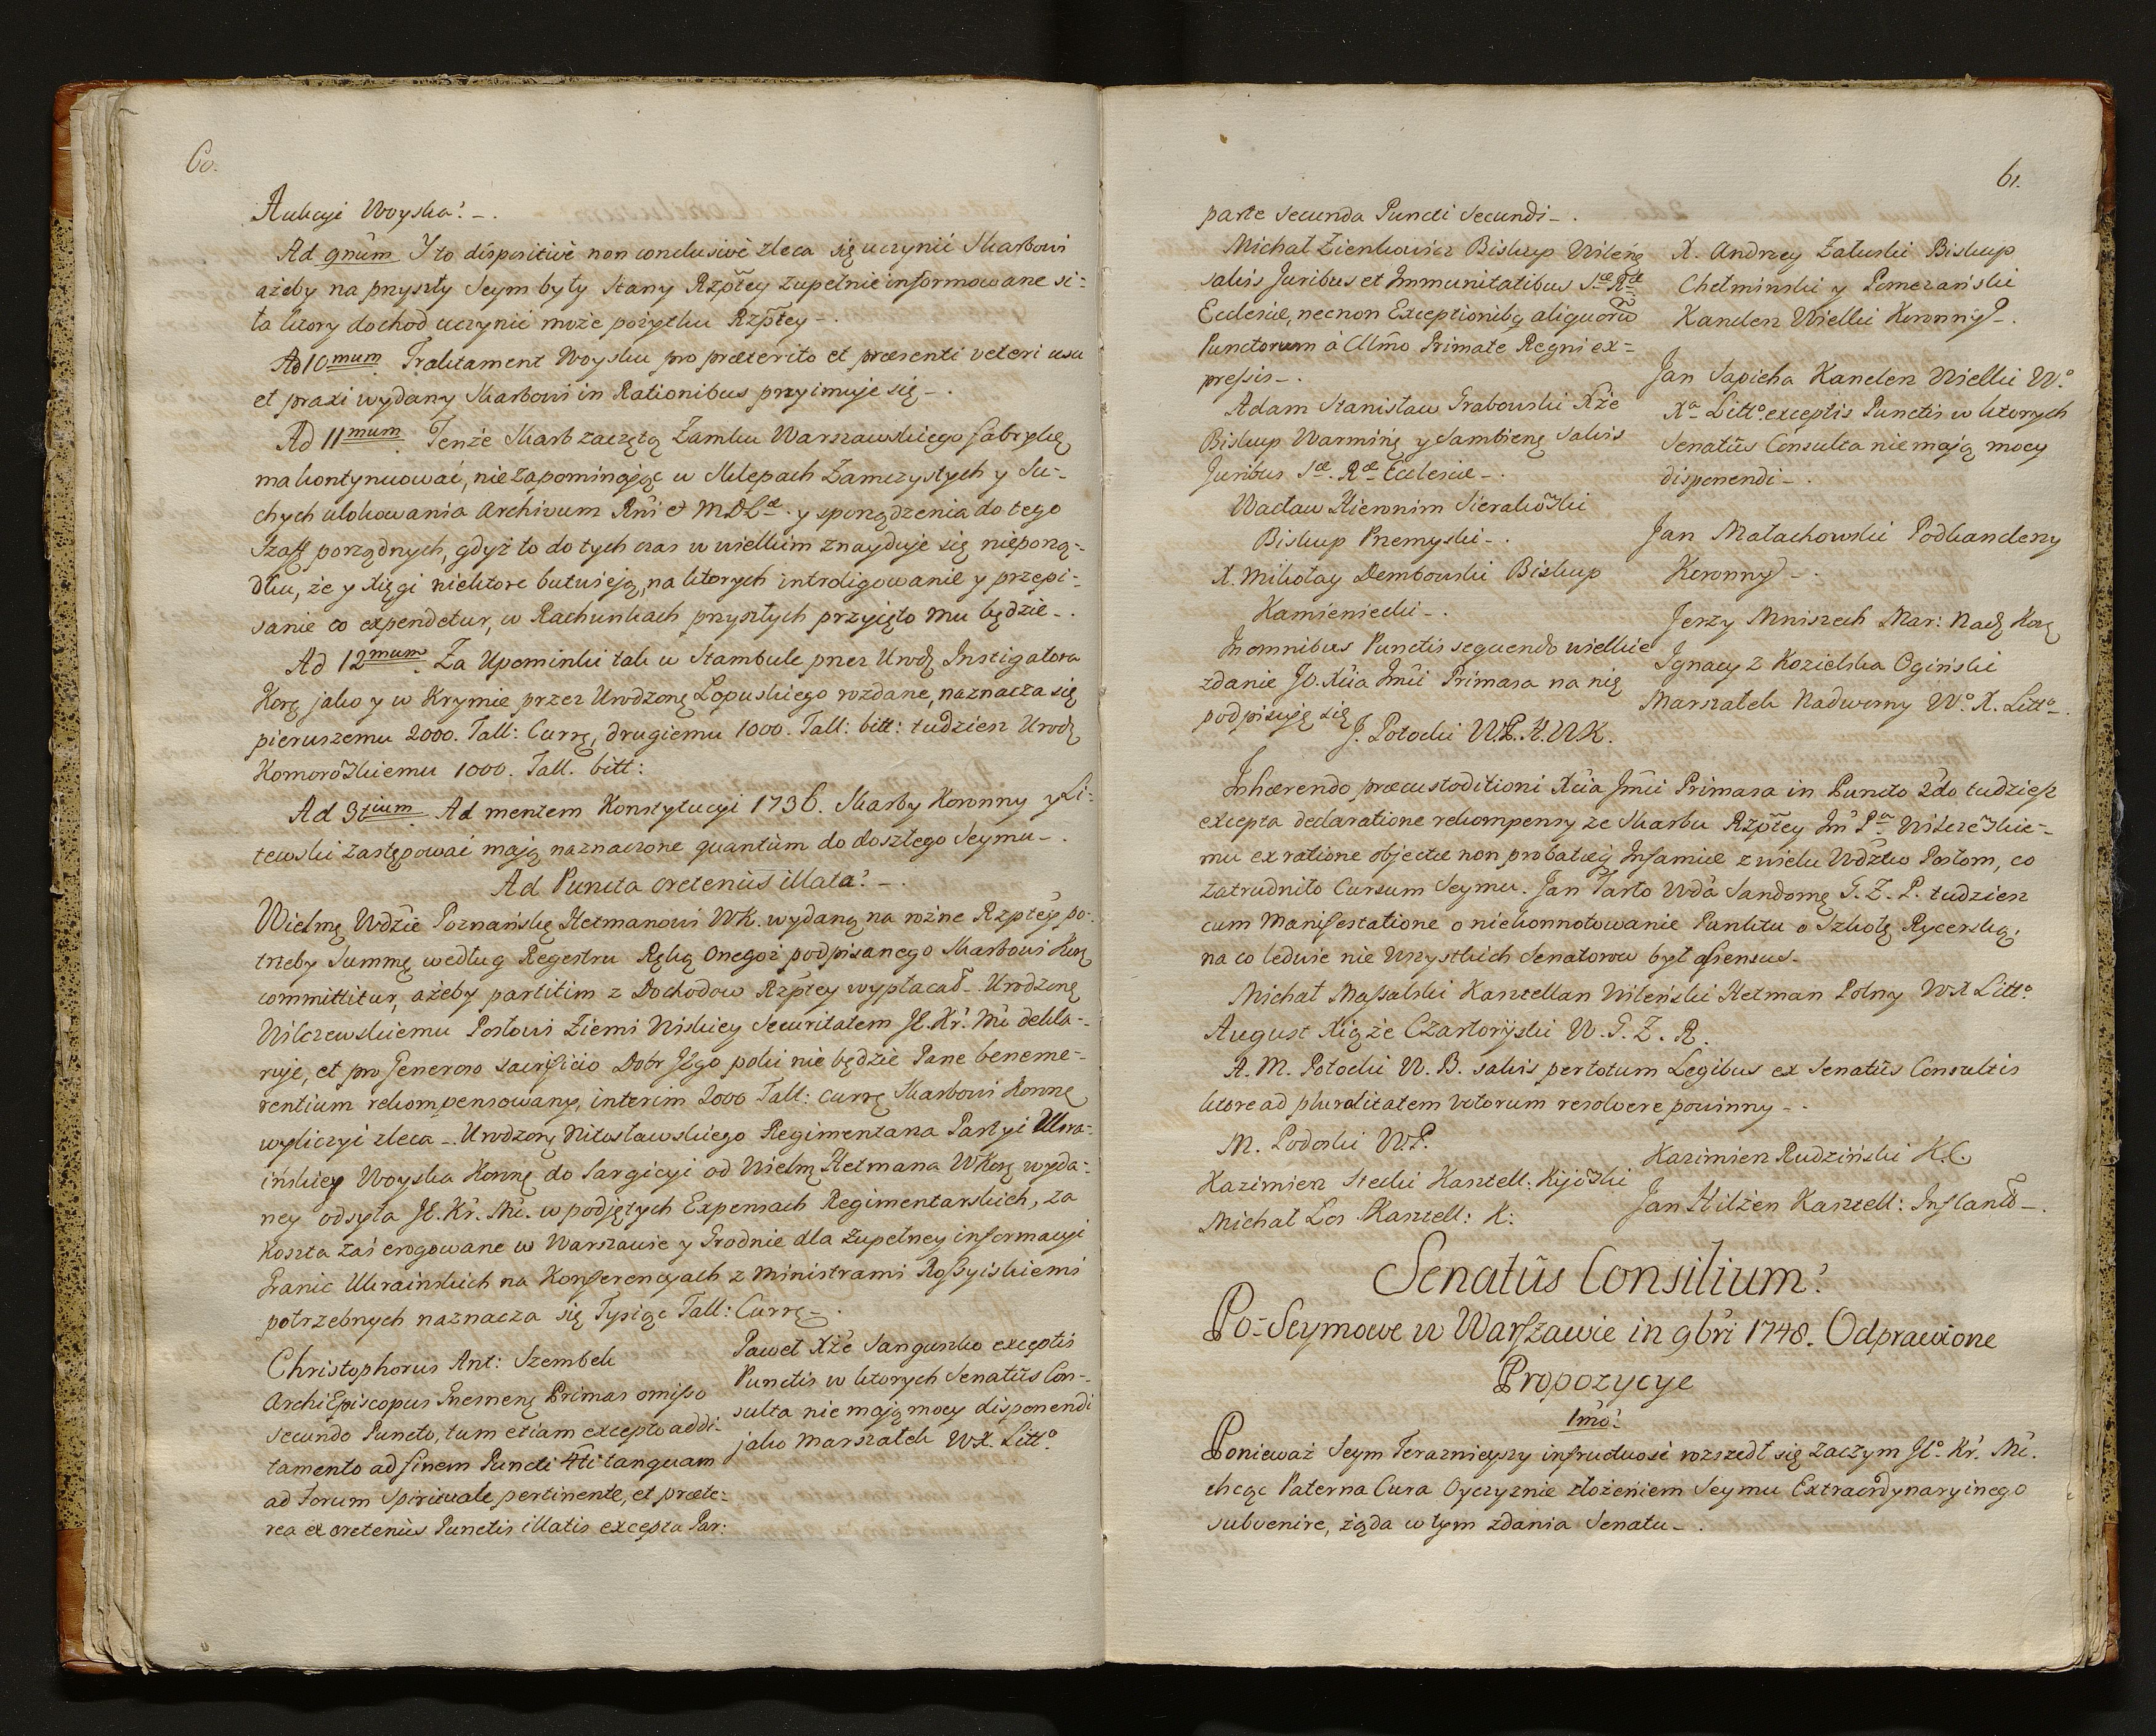 60.
Aukcyi Woyska. -.
Ad 9num Y to dispositivè non conclusivè zleca się uczynić Skarbowi
ażeby na przyszły Seym były Stany Rzpltey zupełnie informowane si-
ła ktory dochod uczynić może pożytku Rzpltey -.
Ad 10mum Traktament Woysku pro præterito et præsenti veteri usu
et praxi wydany Skarbowi in Rationibus przyimuje się -.
Ad 11mum Tenże Skarb zaczętą Zamku Warszawskiego fabrykę
ma kontynuować, nie zapominając w Sklepach Zamczystych y Su-
chych ulokowania Archivum Rni et MDLæ. y sporządzenia do tego
Szaff porządnych, gdyż to do tych czas w wielkim znayduje się nieporzą-
dku, że y Xięgi niektore butwieją, na ktorych introligowanie y przepi-
sanie co expendetur, w Rachunkach przyszłych przyięto mu będzie -.
Ad 12mum Za Upominki tak w Stambule przez Urodz Instigatora
Kor jako y w Krymie przez Urodzone Łopuskiego rozdane, naznacza się
pierwszemu 2000. Tall: Curr, drugiemu 1000. Tall: bitt: tudziesz Urodz
Komorowskiemu 1000. Tall. bitt:
Ad 3tium Ad mentem Konstytucyi 1736. Skarby Koronny y Li-
tewski zastępować mają naznaczone quantùm do doszłego Seymu -.
Ad Puncta oretenùs illata. -.
Wielm Wdzie Poznańsk Hetmanowi WK. wydaną na rożne Rzpltey po-
trzeby Summę według Regestru Ręką Onegoż podpisanego Skarbowi Kor
committitur, ażeby partitim z Dochodow Rzpltey wypłacał - Urodzone
Wilczewskiemu Posłowi Ziemi Wiskiey Securitatem JE. Kr. Mć dekla-
ruje, et pro generoso sacrificio Dobr JEgo poki nie będzie Pane beneme-
rentium rekompensowany, interim 2000 Tall: curr Skarbowi Koron
wyliczyć zleca - Urodzone Witosławskiego Regimentarza Partyi Ukra-
ińskiey Woyska Koron do largicyi od Wielm Hetmana WKor wyda-
ney odsyła JE. Kr. Mć. w podjętych Expensach Regimentarskich, za
Koszta zaś erogowane w Warszawie y Grodnie dla zupełney informacyi
Granic Ukraińskich na Konferencyach z Ministrami Rossyiskiemi
potrzebnych naznacza się Tysiąc Tall: Curr -.
Christophorus Ant: Szembek
ArchiEpiscopus Gnesnen Primas omisso
secundo Puncto, tum etiam excepto addi-
tamento ad finem Puncti 4ti tanquam
ad Forum Spirituale pertinente, et præte-
rea ex oretenùs Punctis illatis excepta Par:
Paweł Xże Sanguszko exceptis
Punctis w ktorych Senatûs Con-
sulta nie mają mocy disponendi
jako Marszałek WX. Litto.
61.
parte secunda Puncti secundi -.
Michał Zienkowicz Biskup Wileń
salvis Juribus et Immunitatibus Sæ Ræ
Ecclesiæ, necnon Exceptionib9 aliquorum
Punctorum à Cllmo Primate Regni ex-
pressis -.
Adam Stanisław Grabowski Xże
Biskup Warmiń y Sambień salvis
Juribus Sæ. Ræ Ecclesiæ -.
Wacław Hieronim Sierakowski
Biskup Przemyski -.
X. Mikołay Dembowski Biskup
Kamieniecki -.
In omnibus Punctis sequendo wielkie
zdanie JO. Xcia Jmci Primasa na nię
podpisuję się J. Potocki W.P. H.W.K.
X. Andrzey Załuski Biskup
Chełminski y Pomezański
Kanclerz Wielki Koronny -.
Jan Sapieha Kanclerz Wielki Wo.
Xa Litto. exceptis Punctis w ktorych
Senatûs Consulta nie mają mocy
disponendi -.
Jan Małachowski Podkanclerzy
Koronny -.
Jerzy Mniszech Mar: Nad Kor
Ignacy z Kozielska Ogiński
Marszałek Nadworny Wo. X. Litto -.
Inhærendo præcustoditioni Xcia Jmci Primasa in Puncto 2do tudziesz
excepta declaratione rekompensy ze Skarbu Rzpltey Jm Pa Wilczewskie-
mu ex ratione objectæ non probatæq Infamiæ z wielu Wdztw Posłom, co
zatrudniło Cursum Seymu. Jan Tarło Wda Sandom G. Z. P. tudziesz
cum Manifestatione o niekonnotowanie Punktu o Szkołę Rycerską,
na co ledwie nie wszystkich Senatorow był assensus -
Michał Massalski Kasztellan Wileński Hetman Polny WX Litto.
August Xiąże Czartoryski W. G. Z. R.
A. M. Potocki W. B. salvis per totum Legibus ex Senatûs Consultis
ktore ad pluralitatem votorum resolvere powinny -.
M. Podoski W.P.
Kazimierz Stecki Kasztell: Kijowski
Michał Łos Kasztell: K:
Kazimierz Rudziński K.C.
Jan Hilżen Kasztell: Inflant -.
Senatûs Consilium.
Po-Seymowe w Warszawie in 9bri 1748. Odprawione
Propozycye
1mo.
Ponieważ Seym Teraznieyszy infructuosè rozszedł się zaczym JEo. Kr. Mć.
chcąc Paterna Cura Oyczyznie złożeniem Seymu Extraordynaryinego
subvenire, żąda w tym zdania Senatu -.